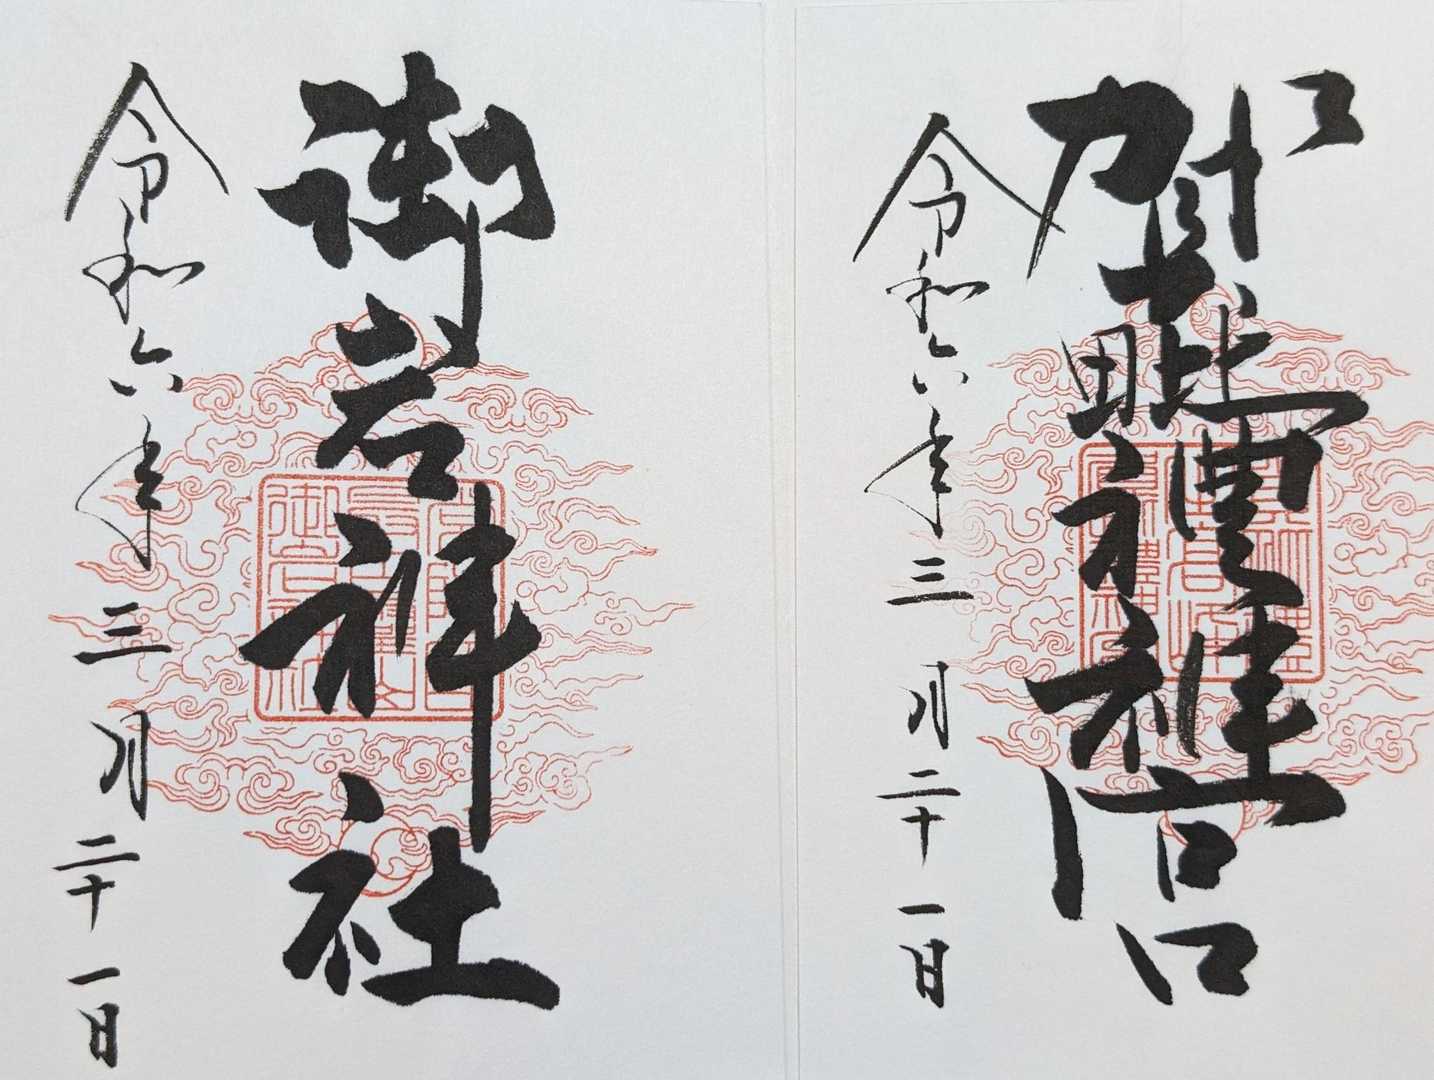 賀毗禮神宮
令和六年三月二十一日
御岩神社
令和六年三月二十一日